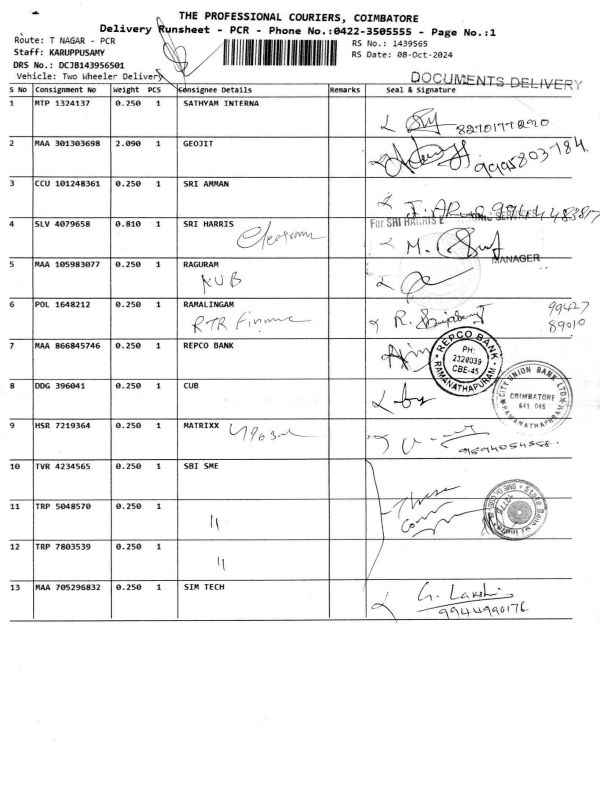 THE PROFESSIONAL COURIERS, COIMBATORE
Delivery Runsheet - PCR - Phone No.:0422-3505555 - Page No.:1
Route: T NAGAR - PCR
RS No.: 1439565
Staff: KARUPPUSAMY
RS Date: 08-Oct-2024
DRS No.: DCJB143956501
Vehicle: Two Wheeler Delivery
DOCUMENTS DELIVERY
S No Consignment No Weight PCS Consignee Details Remarks Seal & Signature
1 MTP 1324137 0.250 1 SATHYAM INTERNA
2 MAA 301303698 2.090 1 GEOJIT
9995803784.
3 CCU 101248361 0.250 1 SRI AMMAN
4 SLV 4079658 0.810 1 SRI HARRIS
For SRI HARRIS E
Electronic
M.
MANAGER
5 MAA 105983077 0.250 1 RAGURAM
KUB
6 POL 1648212 0.250 1 RAMALINGAM
RTR Finance
R.
99427
89010
7 MAA 866845746 0.250 1 REPCO BANK
REPCO BANK
PH:
2320039
CBE-45
RAMANATHAPURAM
8 DDG 396041 0.250 1 CUB
CITY UNION BANK LTD
COIMBATORE
641 045
RAMANATHAPURAM
9 HSR 7219364 0.250 1 MATRIXX
10 TVR 4234565 0.250 1 SBI SME
These
State Bank of India
11 TRP 5048570 0.250 1
"
12 TRP 7803539 0.250 1
"
13 MAA 705296832 0.250 1 SIM TECH
G. Lakshi
9944990176.